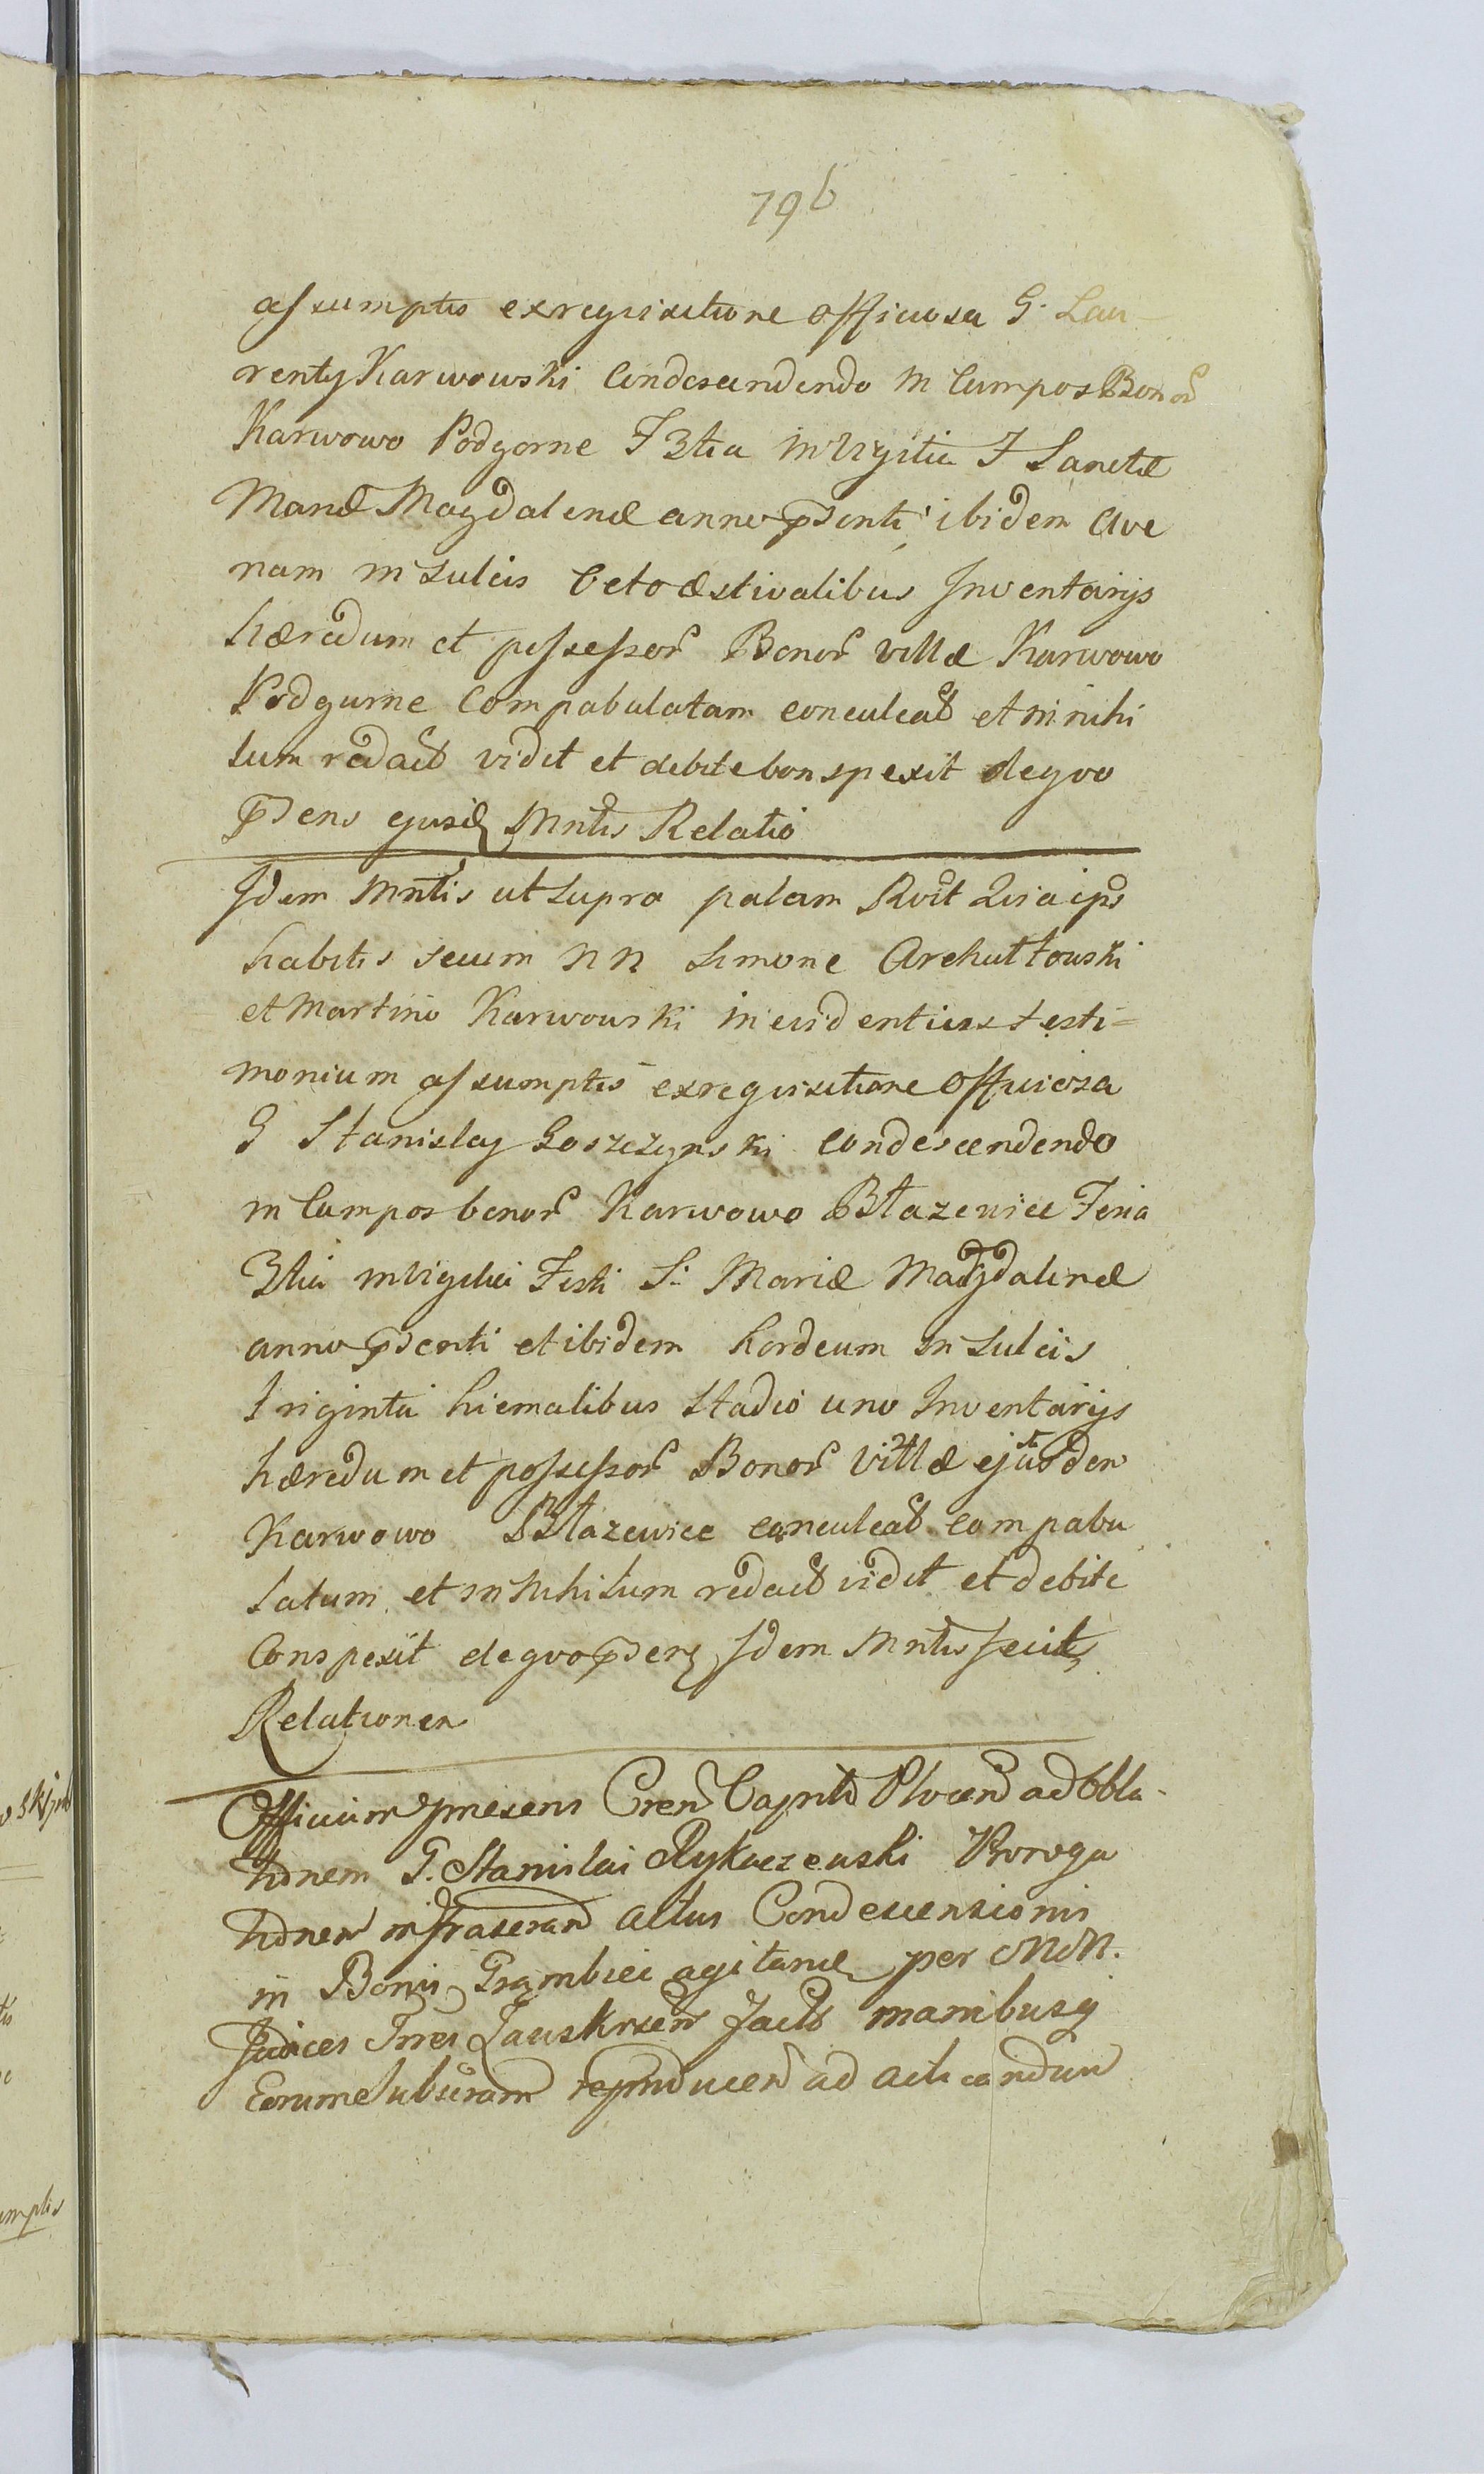 796
assumptis exrequisitione officiosa G. Lau-
renty Karwowski Condescendendo in Campos Bonor
Karwowo Podgorne F 3tia in Vigilia F Sanctæ
Mariæ Magdalenæ anno pdsenti ibidem Ave
nam in Sulcis Octo æstivalibus Inventarijs
hæredum et possessor Bonor Villæ Karwowo
Podgurne Compabulatam conculcat et in nihi
lum redact vidit et debite Conspexit de quo
pdens ejusd Mntis Relatio
Idem Mntis ut Supra palam Rvit Quia ips
habitis secum NN Simone Archuttowski
et Martino Karwowski in evidentius testi=
monium assumptis exrequisitione Officiosa
G Stanislaj Goszczynski condescendendo
in Campos bonor Karwowo Błazewice Feria
3tia in vigilia Festi S: Mariæ Magdalenæ
anno pdsenti et ibidem hordeum in Sulcis
triginta hiemalibus Stadio uno Inventarijs
hæredum et possessor Bonor Villæ ejusdem
Karwowo Błazewice conculcat compabu
latum et in Nihilum redact vidit et debite
Conspexit de quo pdens Idem Mntis fecit
Relationem
Officium præsens Cren Capitl Plocen ad Obla-
tionem G. Stanislai Rykaczewski Proroga
tionem infrascran actus Condescensionis
in Bonis Grąmbice agitanæ per MNN.
Judices Tres Zauskrsen fact manibusq
Eorume subscram reproducen ad acticandum
vskj
mptis